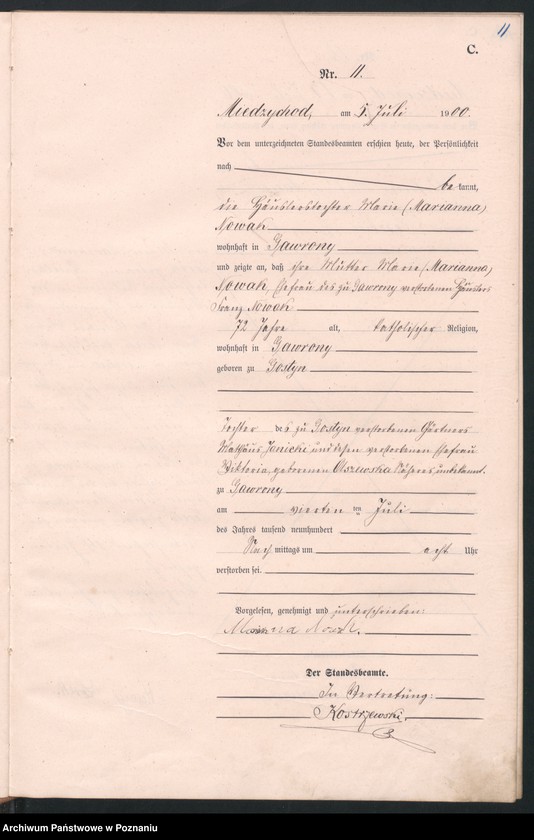 11
C.
Nr. 11.
Miedzychod, am 5. Juli 1900.
Vor dem unterzeichneten Standesbeamten erschien heute, der Persönlichkeit
nach
be kannt,
die Häuslerstochter Marie (Marianna)
Nowak
wohnhaft in Gawrony
und zeigte an, daß ihre Mutter Marie (Marianna)
Nowak, Ehefrau des zu Gawrony verstorbenen Häuslers
Franz Nowak
72 Jahre alt, katholischer Religion,
wohnhaft in Gawrony
geboren zu Gostyn
Tochter des zu Gostyn verstorbenen Gärtners
Mathäus Janicki und dessen verstorbenen Ehefrau
Viktoria, geborenen Olszewska Näheres unbekannt.
zu Gawrony
am vierten ten Juli
des Jahres tausend neunhundert
Nach mittags um acht Uhr
verstorben sei.
Vorgelesen, genehmigt und unterschrieben:
Der Standesbeamte.
In Vertretung:
Kostrzewski.
Archiwum Państwowe w Poznaniu